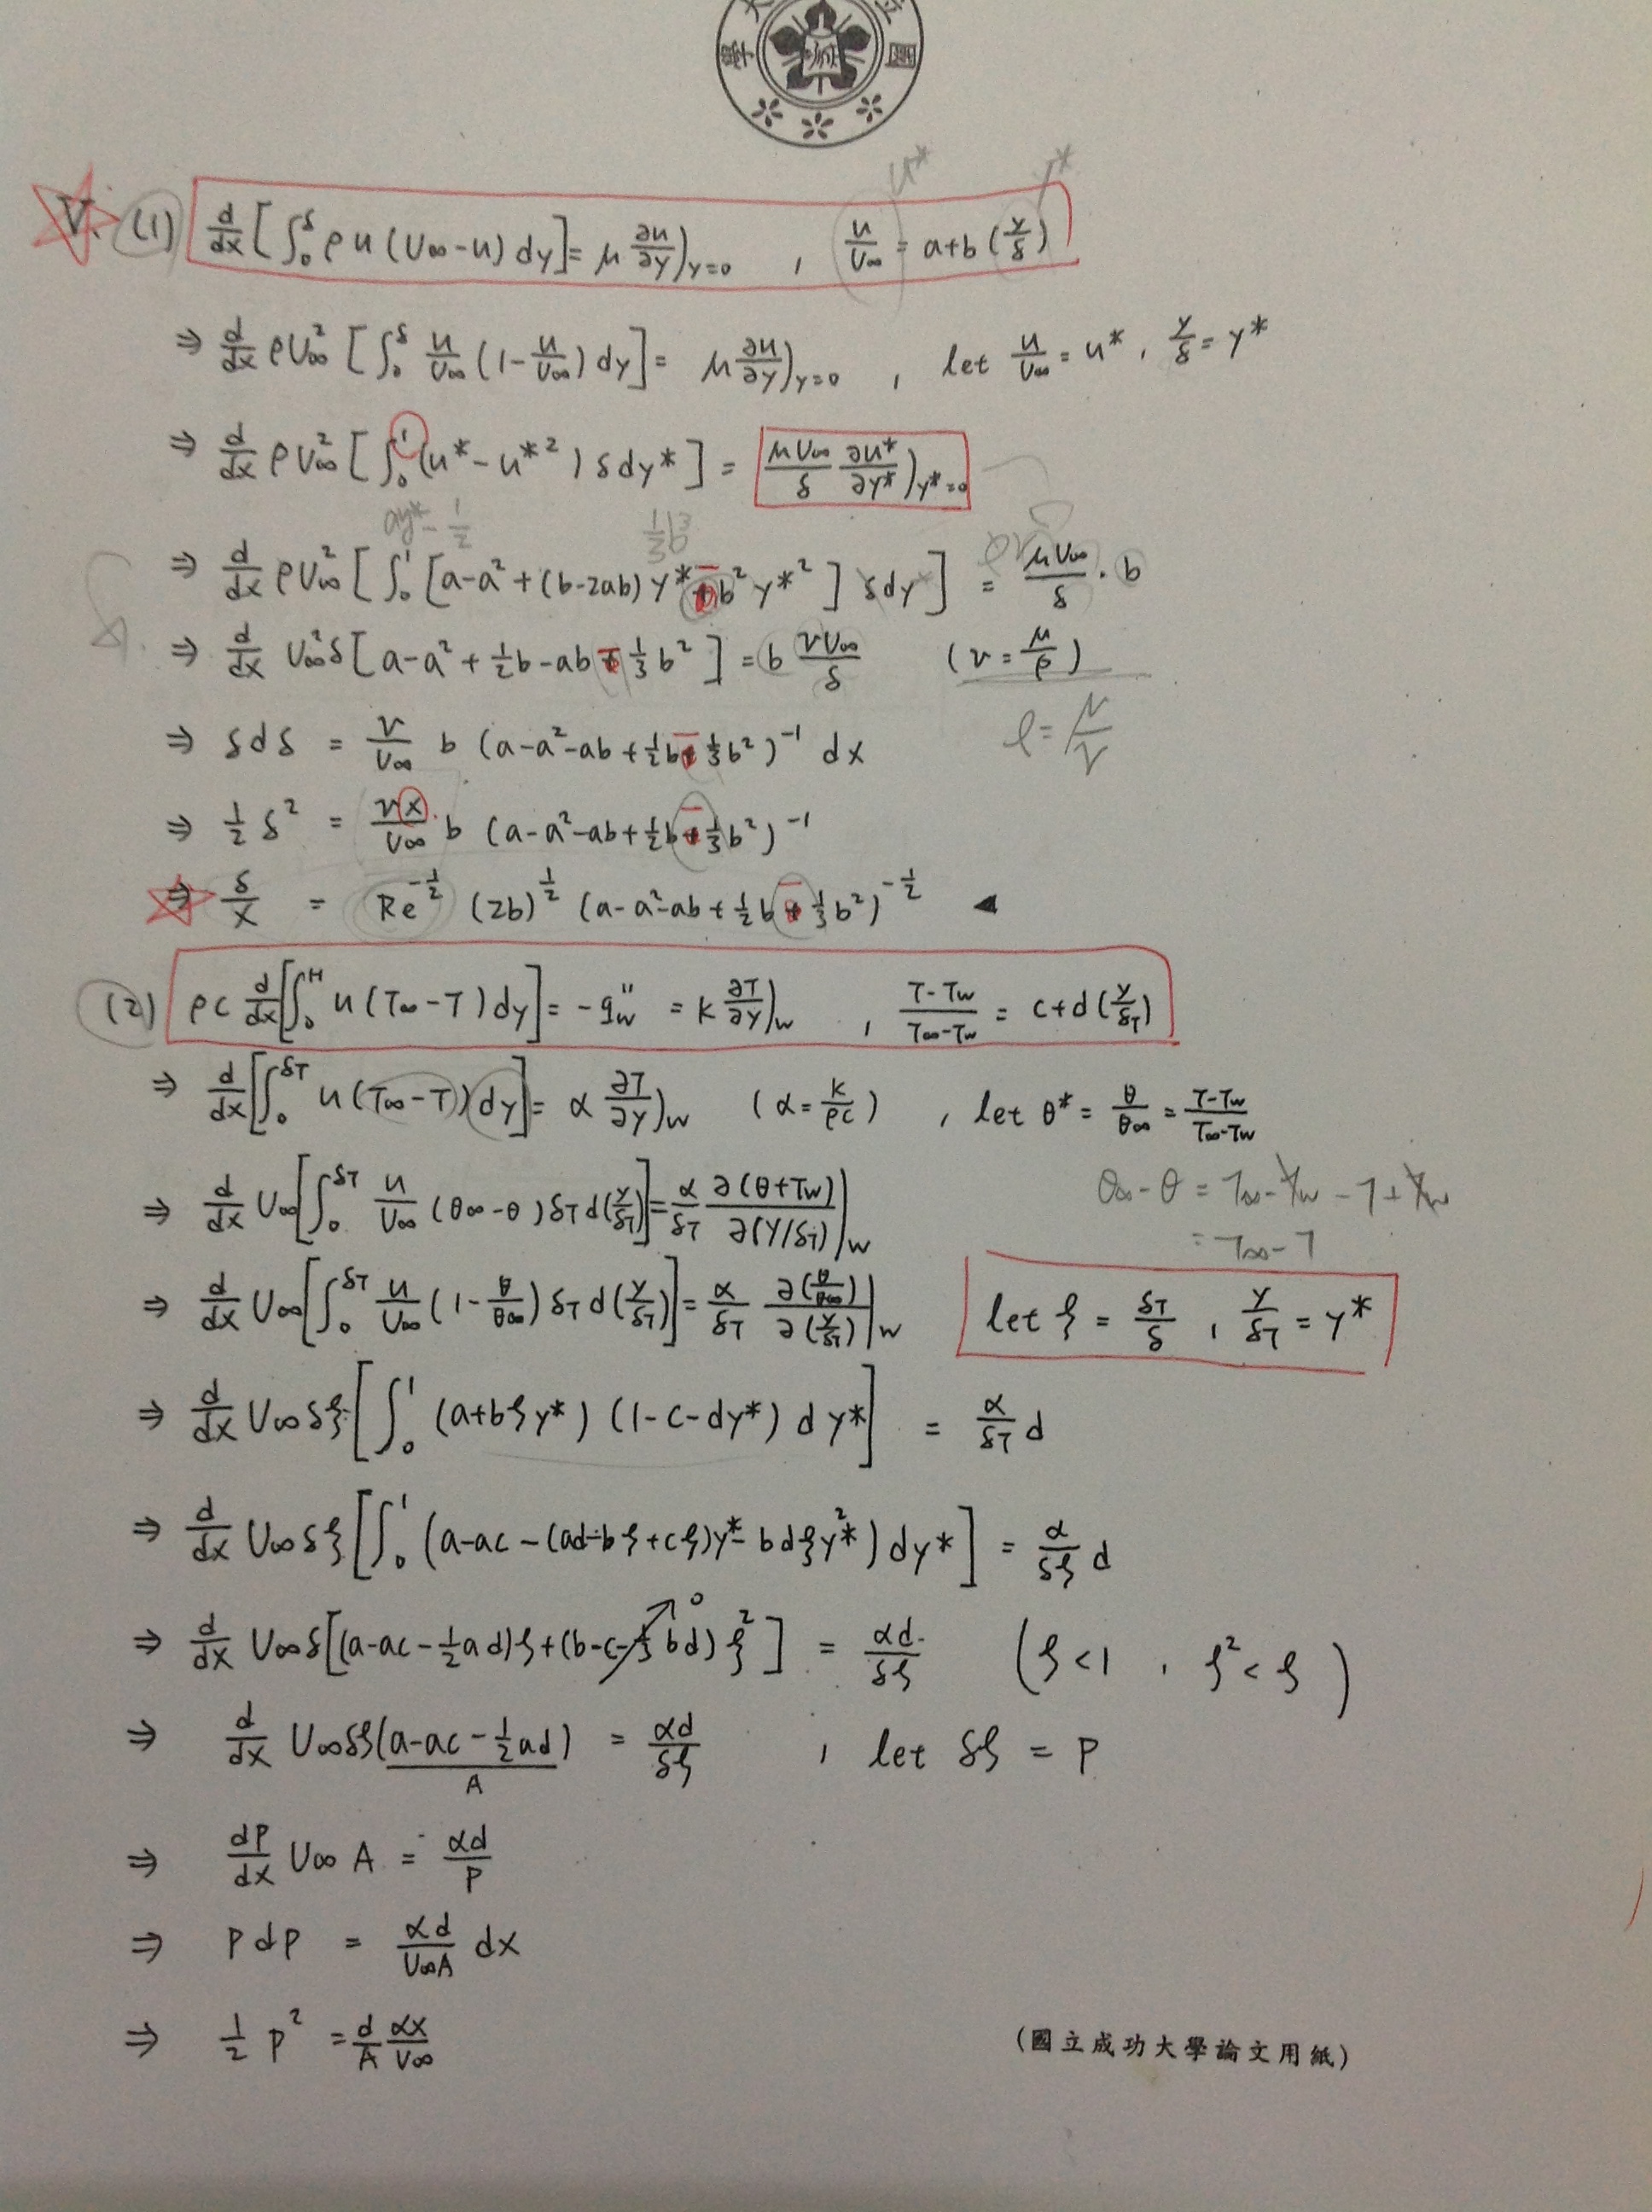 大 立
學 國
U* Y*
V. (1) d/dx [∫₀^δ ρu (U∞-u) dy] = μ ∂u/∂y)y=0 , u/U∞ = a+b (y/δ)
⇒ d/dx ρU∞² [∫₀^δ u/U∞ (1-u/U∞) dy] = μ ∂u/∂y)y=0 , let u/U∞ = u* , y/δ = y*
⇒ d/dx ρU∞² [∫₀^1 (u*-u*²) δdy*] = μU∞/δ ∂u*/∂y*)y*=0
ay* - 1/2 1/3 b³
⇒ d/dx ρU∞² [∫₀^1 [a-a²+(b-2ab) y* - b² y*²] δdy*] = μU∞/δ · b
⇒ d/dx U∞²δ [a-a²+½b-ab-⅓b²] = b νU∞/δ (ν = μ/ρ)
ρ = μ/ν
⇒ δdδ = ν/U∞ b (a-a²-ab+½b-⅓b²)⁻¹ dx
⇒ ½ δ² = νx/U∞ · b (a-a²-ab+½b-⅓b²)⁻¹
⇒ δ/x = Re^-½ (2b)^½ (a-a²-ab+½b-⅓b²)^-½ ◄
(2) ρc d/dx [∫₀^H u (T∞-T) dy] = -q"w = k ∂T/∂y)w , T-Tw/T∞-Tw = c+d (y/δT)
⇒ d/dx [∫₀^δT u (T∞-T) dy] = α ∂T/∂y)w (α = k/ρc) , let θ* = θ/θ∞ = T-Tw/T∞-Tw
θ∞-θ = T∞-Tw-T+Tw
= T∞-T
⇒ d/dx U∞ [∫₀^δT u/U∞ (θ∞-θ) δT d(y/δT)] = α/δT ∂(θ+Tw)/∂(y/δT)|w
⇒ d/dx U∞ [∫₀^δT u/U∞ (1-θ/θ∞) δT d(y/δT)] = α/δT ∂(θ/θ∞)/∂(y/δT)|w let ξ = δT/δ , y/δT = y*
⇒ d/dx U∞ δξ [∫₀^1 (a+bξy*) (1-c-dy*) dy*] = α/δT d
⇒ d/dx U∞ δξ [∫₀^1 (a-ac-(ad-bξ+cξ)y*-bdξy*²) dy*] = α/δξ d
⇒ d/dx U∞ δ [(a-ac-½ad)ξ+(b-c-⅓bd)ξ²] = αd/δξ (ξ<1 , ξ²<ξ)
0
⇒ d/dx U∞δξ (a-ac-½ad) = αd/δξ , let δξ = P
A
⇒ dP/dx U∞ A = αd/P
⇒ PdP = αd/U∞A dx
⇒ ½ P² = d/A αx/U∞
(國立成功大學論文用紙)